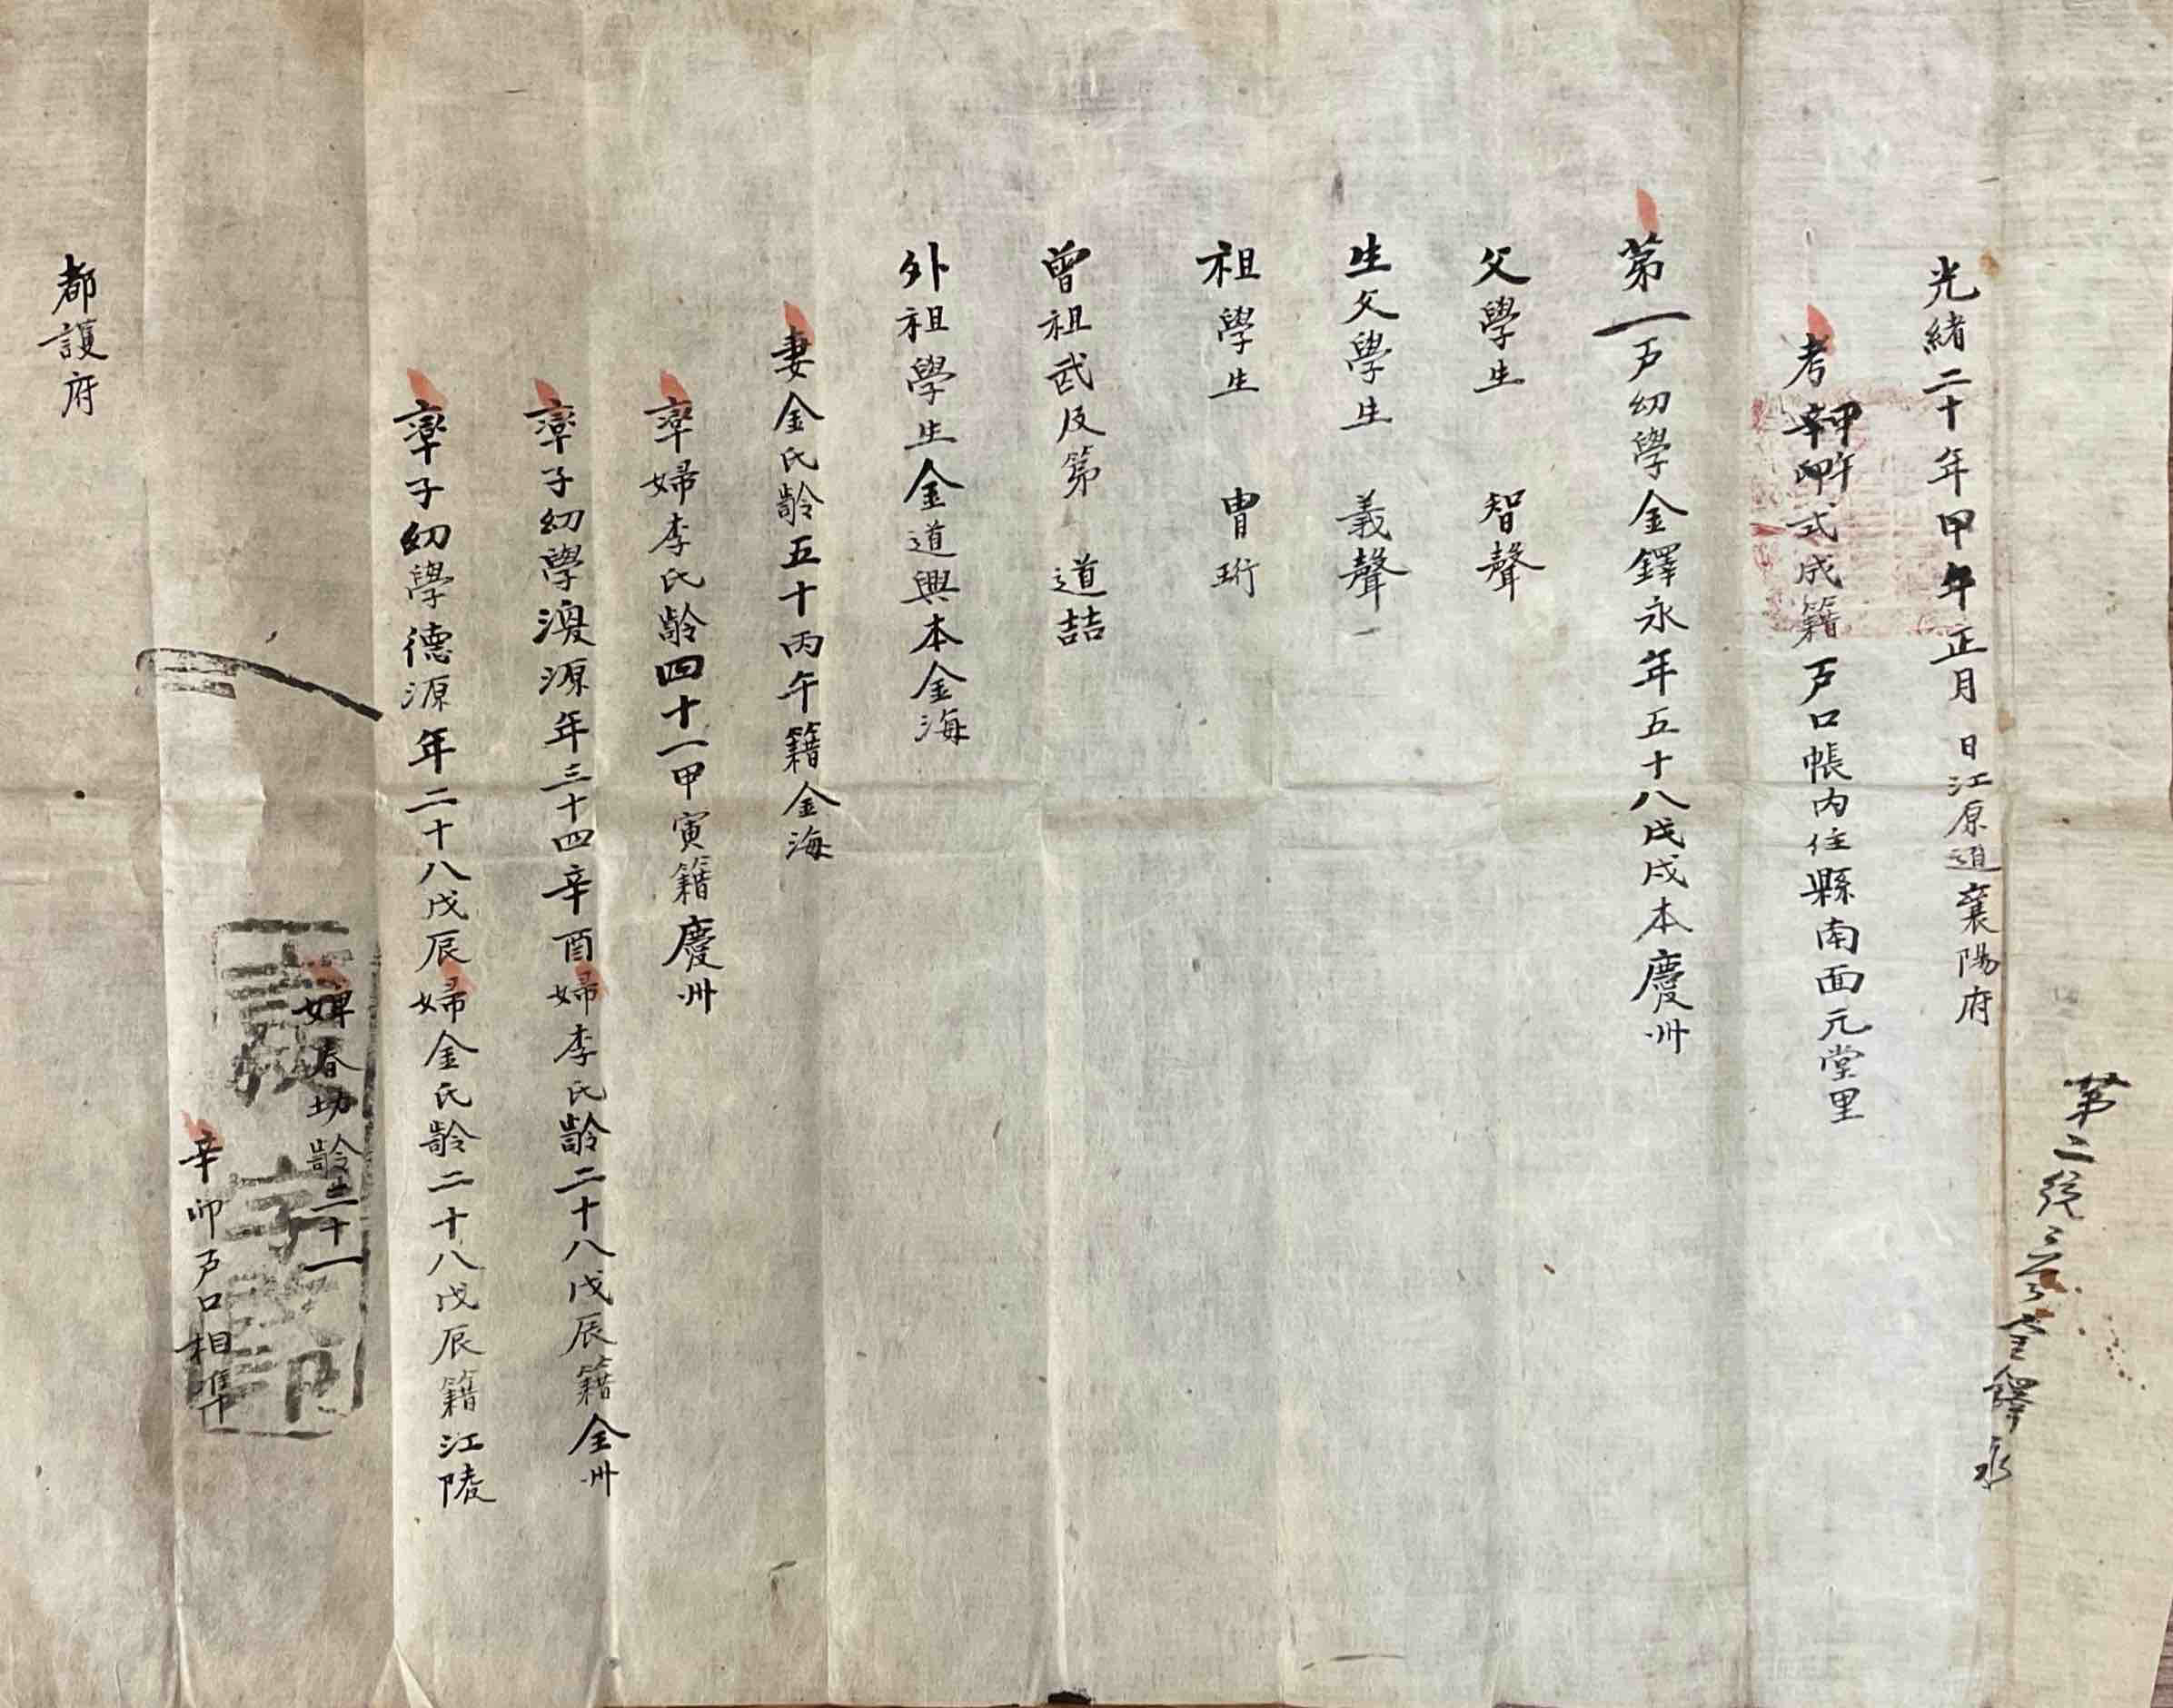 第二統三戶金鐸永
光緖二十年甲午正月 日江原道襄陽府
考甲午式成籍戶口帳內住縣南面元堂里
第一戶幼學金鐸永年五十八戊戌本慶州
父學生 智聲
生父學生 義聲
祖學生 胄珩
曾祖武及第 道喆
外祖學生金道興本金海
妻金氏齡五十丙午籍金海
率婦李氏齡四十一甲寅籍慶州
率子幼學渡源年三十四辛酉婦李氏齡二十八戊辰籍全州
率子幼學德源年二十八戊辰婦金氏齡二十八戊辰籍江陵
婢春切齡二十一
辛卯戶口相準
都護府